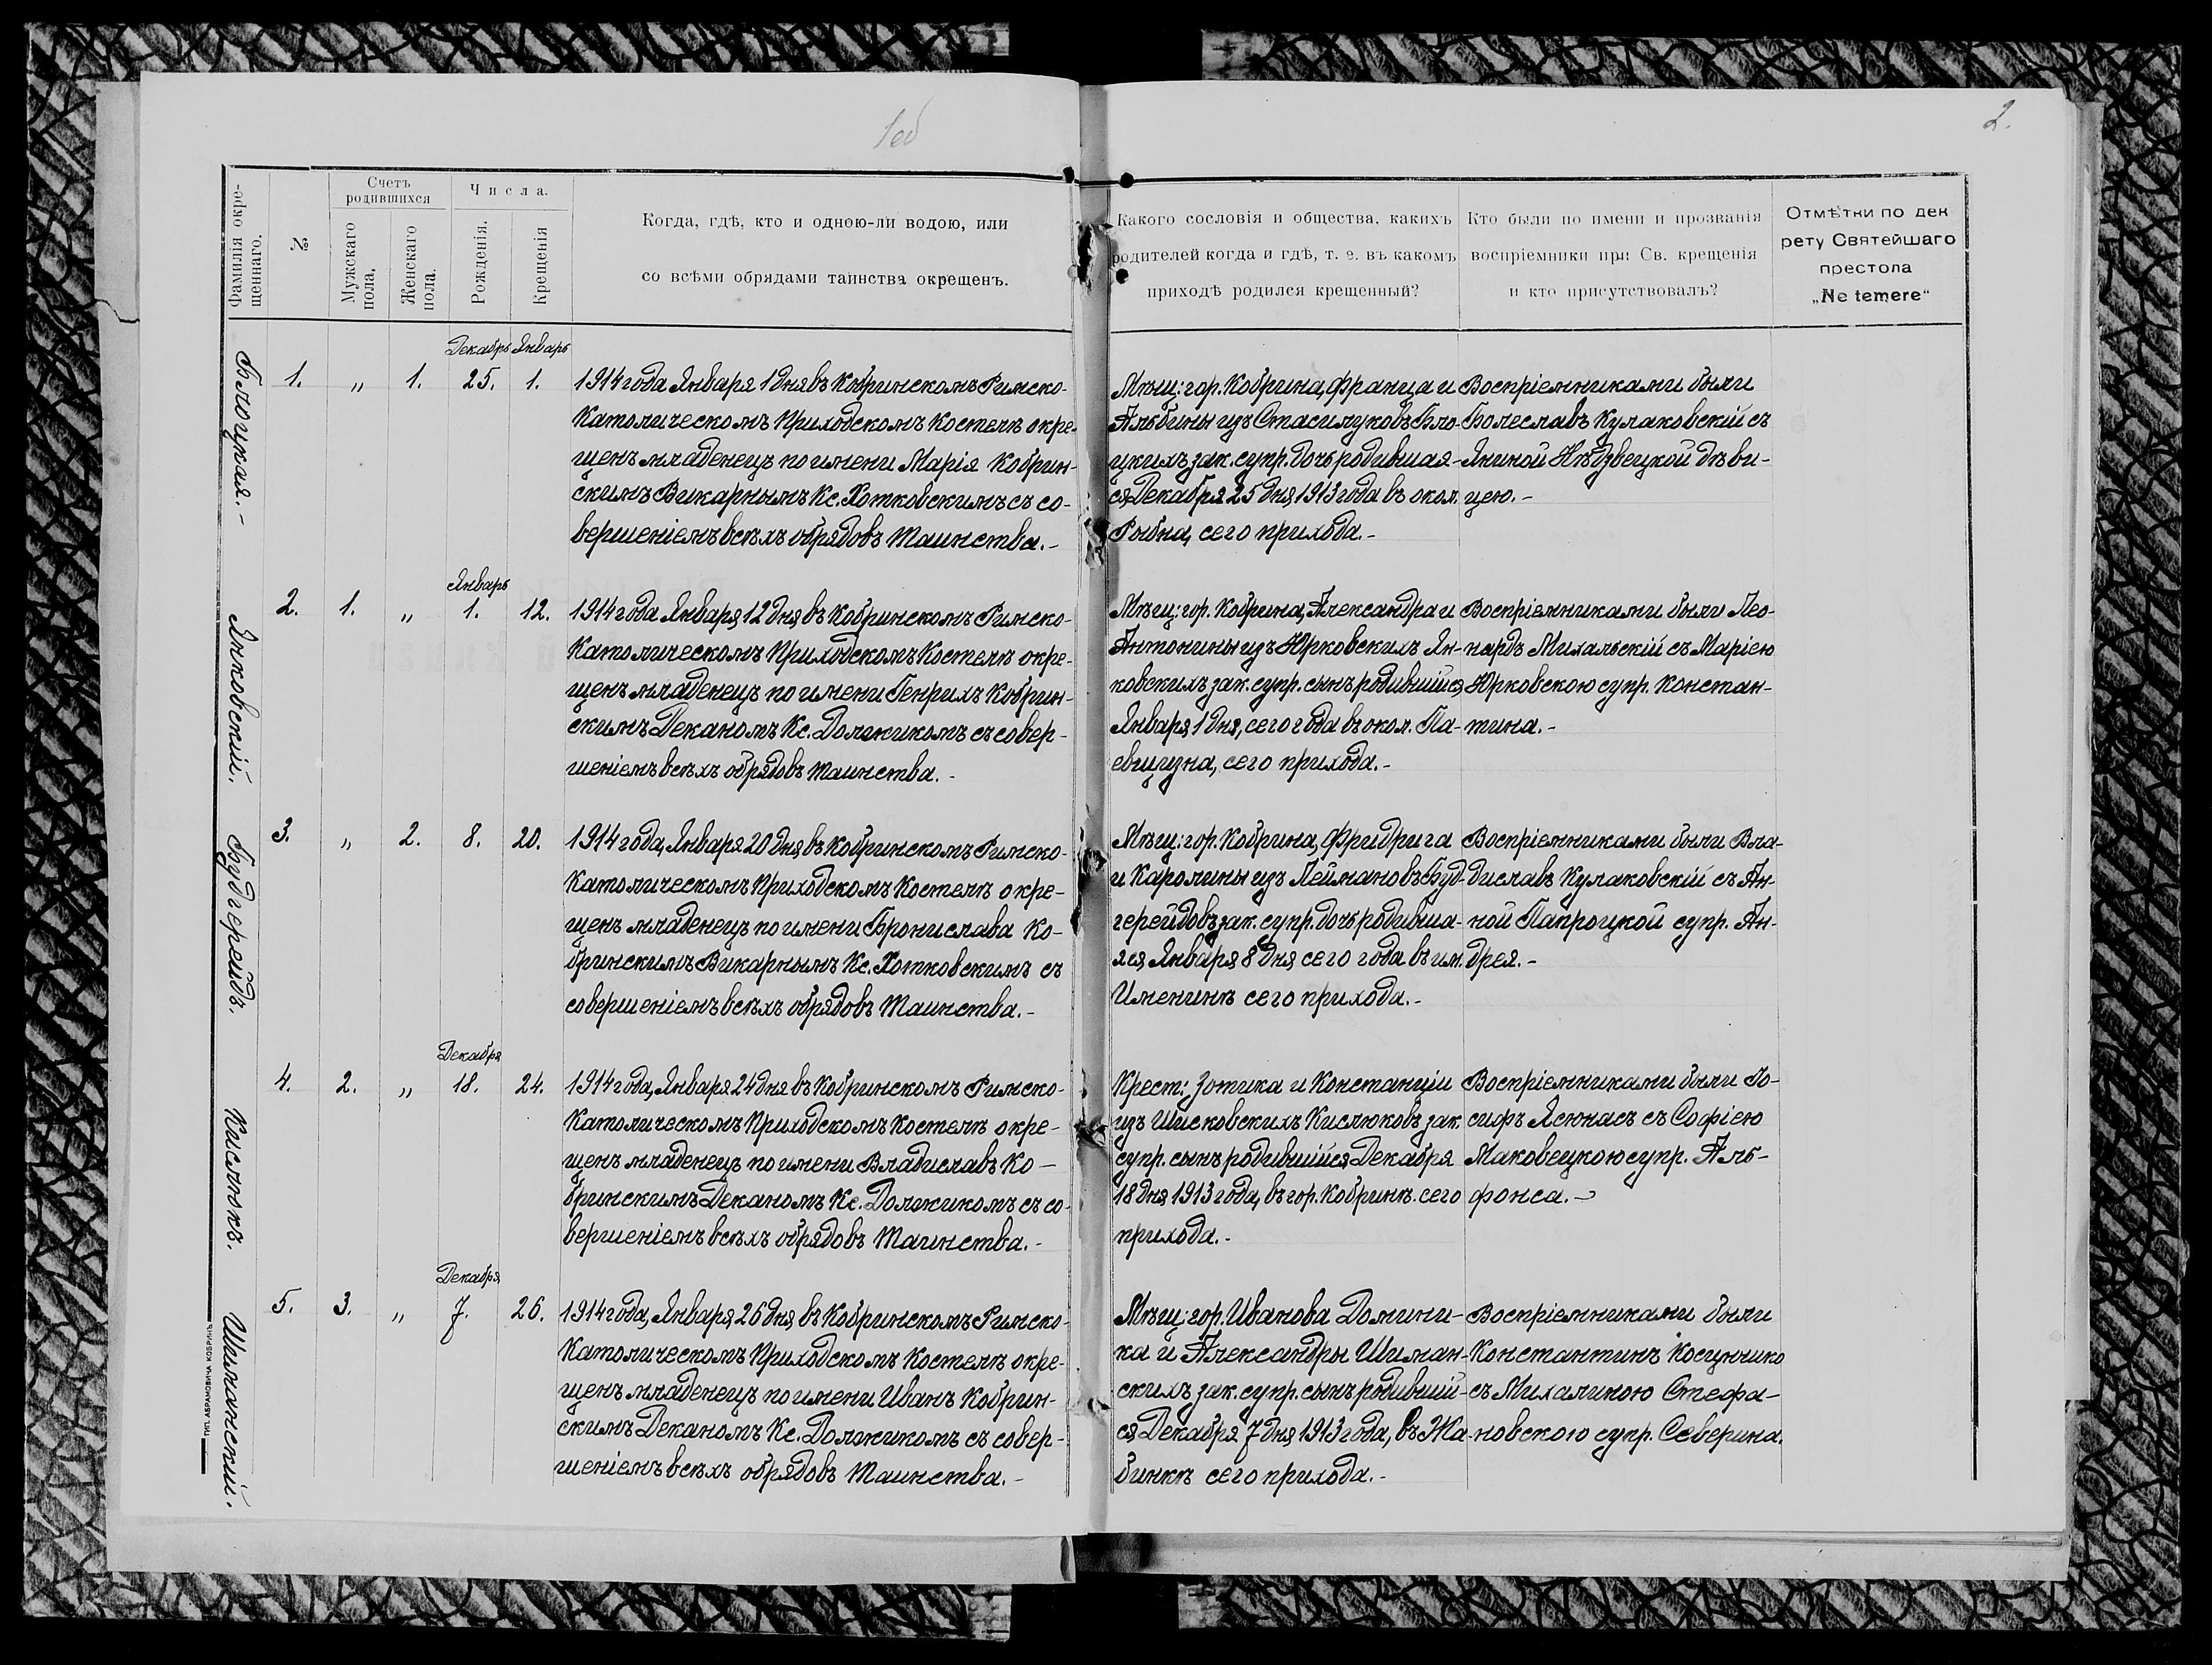 1об
2.
Фамилія окре-
щеннаго.
№
Счетъ
родившихся
Мужскаго
пола.
Женскаго
пола.
Числа.
Рожденія.
Крещенія
Когда, гдѣ, кто и одною-ли водою, или
со всѣми обрядами таинства окрещенъ.
Какого сословія и общества, какихъ
родителей когда и гдѣ, т. е. въ какомъ
приходѣ родился крещенный?
Кто были по имени и прозванія
воспріемники при Св. крещенія
и кто присутствовалъ?
Отмѣтки по дек
рету Святейшаго
престола
„Ne temere“
Блоцкая.-
Декабрь Январь
1. „ 1. 25. 1.
1914 года Января 1 дня въ Кобринскомъ Римско-
Католическомъ Приходскомъ Костелѣ окре-
щенъ младенецъ по имени Марія Кобрин-
скимъ Викарнымъ Кс. Хотковскимъ съ со-
вершеніемъ всѣхъ обрядовъ Таинства.-
Мѣщ: гор. Кобрина, Франца и
Альбины изъ Стасилуковъ Бло-
цкихъ зак. супр. дочь родившая-
ся Декабря 25 дня 1913 года въ окол.
Рыбна, сего прихода.-
Воспріемниками были
Болеславъ Кулаковскій съ
Яниной Нѣдзвецкой дѣви-
цею.-
Янковскій.
Январь
2. 1. „ 1. 12.
1914 года Января 12 дня въ Кобринскомъ Римско-
Католическомъ Приходскомъ Костелѣ окре-
щенъ младенецъ по имени Генрихъ Кобрин-
скимъ Деканомъ Кс. Должикомъ съ совер-
шеніемъ всѣхъ обрядовъ Таинства.-
Мѣщ: гор. Кобрина, Александра и
Антонины изъ Юрковскихъ Ян-
ковскихъ зак. супр. сынъ родившійся
Января 1 дня, сего года въ окол. Па-
евщизна, сего прихода.-
Воспріемниками были Лео-
нардъ Михальскій съ Маріею
Юрковскою супр. Констан-
тина.-
Будгерейдъ.
3. „ 2. 8. 20.
1914 года, Января 20 дня въ Кобринскомъ Римско-
Католическомъ Приходскомъ Костелѣ окре-
щенъ младенецъ по имени Бронислава Ко-
бринскимъ Викарнымъ Кс. Хотковскимъ съ
совершеніемъ всѣхъ обрядовъ Таинства.-
Мѣщ: гор. Кобрина, Фридрига
и Каролины изъ Леймановъ Буд-
герейдовъ зак. супр. дочь родивша-
яся Января 8 дня сего года въ им.
Именинѣ сего прихода.-
Воспріемниками были Вла-
диславъ Кулаковскій съ Ан-
ной Папроцкой супр. Ан-
дрея.-
Кислюкъ.
Декабря
4. 2. „ 18. 24.
1914 года, Января 24 дня въ Кобринскомъ Римско-
Католическомъ Приходскомъ Костелѣ окре-
щенъ младенецъ по имени Владиславъ Ко-
бринскимъ Деканомъ Кс. Должикомъ съ со-
вершеніемъ всѣхъ обрядовъ Таинства.-
Крест: Зотика и Констанціи
изъ Шисковскихъ Кислюковъ зак.
супр. сынъ родившійся Декабря
18 дня 1913 года, въ гор. Кобринѣ. сего
прихода.-
Воспріемниками были Іо-
сифъ Ясюнасъ съ Софіею
Маковецкою супр. Аль-
фонса.-
Шиманскій.
Декабря
5. 3. „ 7. 26.
1914 года, Января 26 дня въ Кобринскомъ Римско-
Католическомъ Приходскомъ Костелѣ окре-
щенъ младенецъ по имени Иванъ Кобрин-
скимъ Деканомъ Кс. Должикомъ съ совер-
шеніемъ всѣхъ обрядовъ Таинства.-
Мѣщ: гор. Иванова Домини-
ка и Александры Шиман-
скихъ зак. супр. сынъ родившій-
ся Декабря 7 дня 1913 года, въ Жа-
бинкѣ сего прихода.-
Воспріемниками были
Константинъ
съ Михалиною Стефа-
новскою супр. Северина.
ТИП. АБРАМОВИЧА КОБРИНЪ